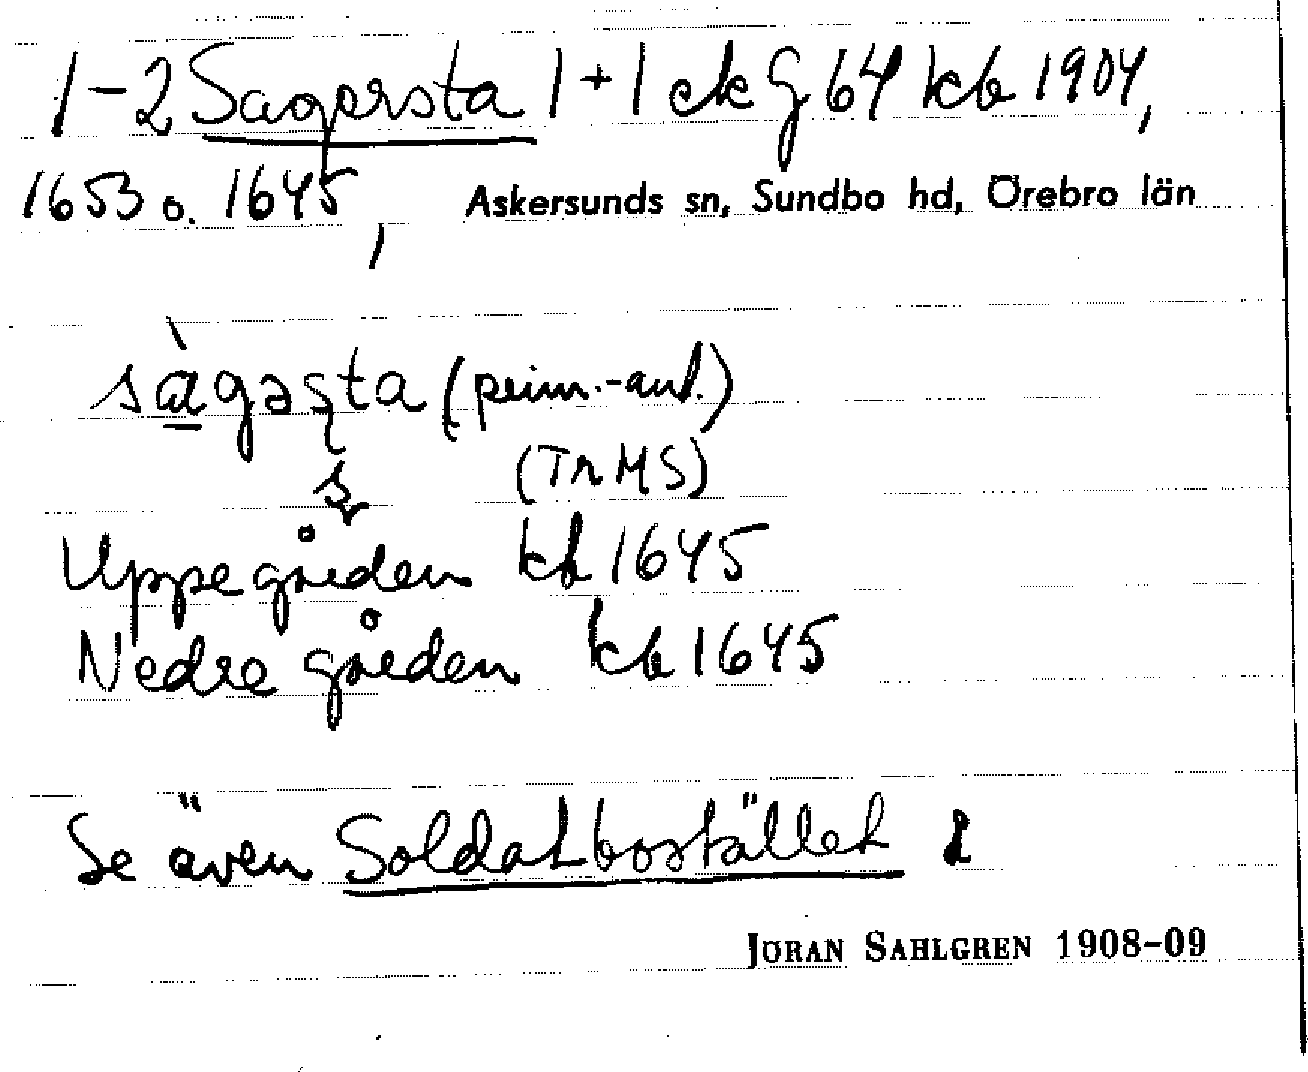 1-2 Sagersta 1+1 ek G 64 kb 1904,
1653 o. 1645, Askersunds sn, Sundbo hd, Örebro län
sàgəșta (prim.-ant.)
ș (Tr MS)
Uppegården kb 1645
Nedre gården kb 1645
Se även Soldatbostället 2
JÖRAN SAHLGREN 1908-09